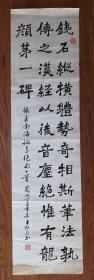 鐵石縱橫體勢奇相斯筆法孰
傳之漢經以後音塵絶惟有龍
顏第一碑